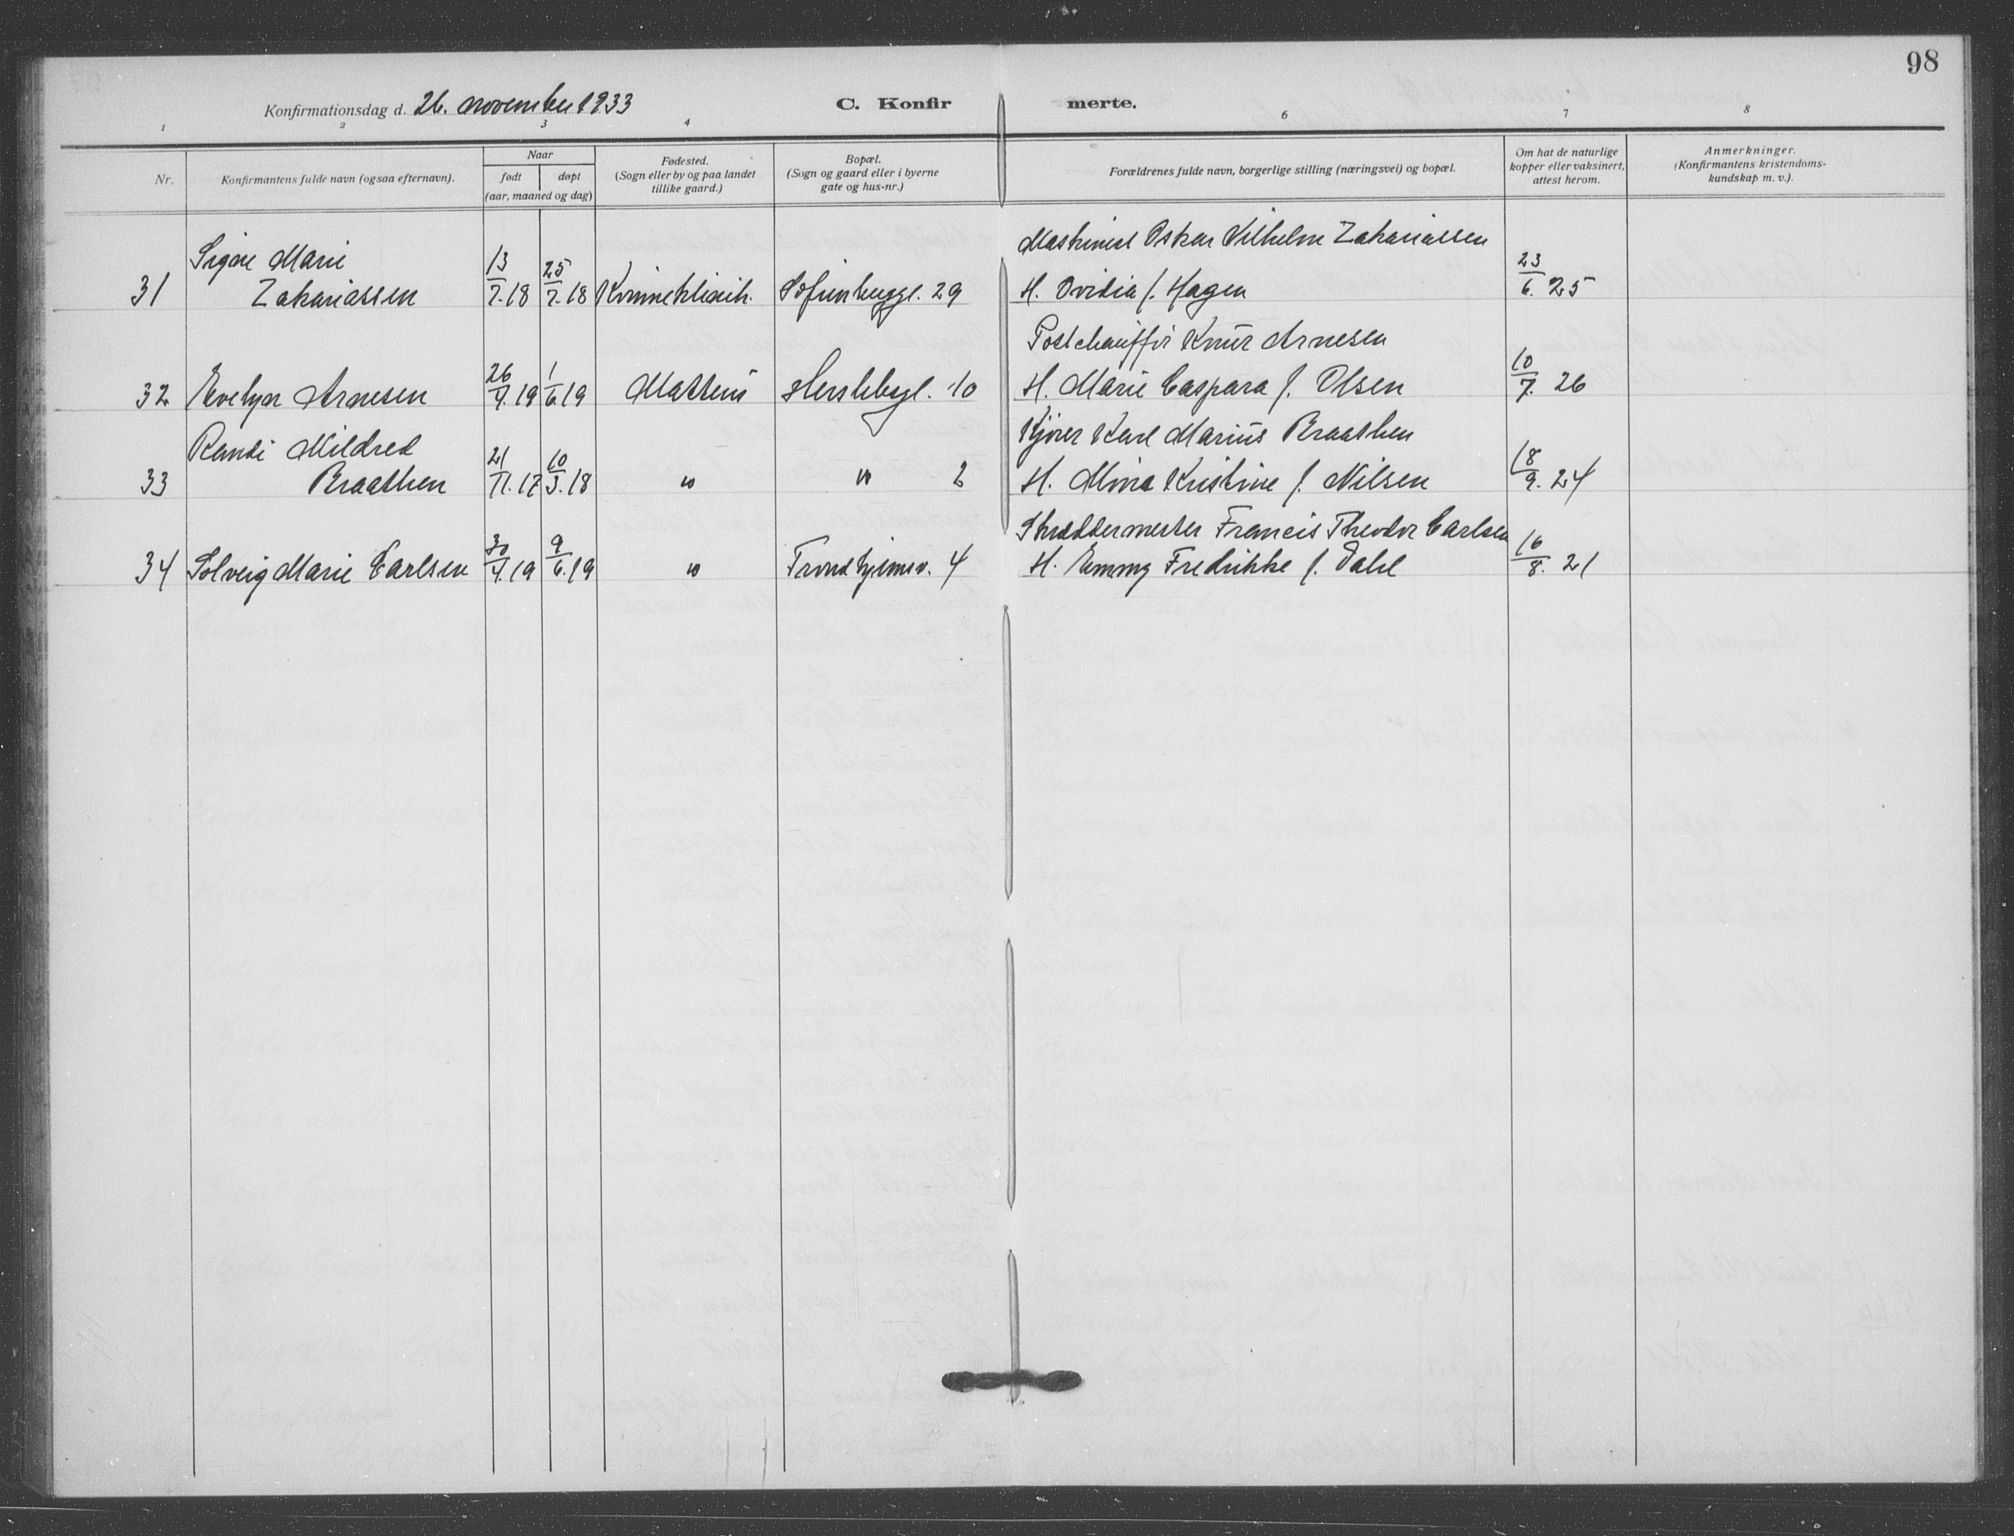 98
Konfirmationsdag d. 26. november 1933
C. Konfirmerte.
1 2 3 4 6 7 8
Nr.
Konfirmantens fulde navn (ogsaa efternavn).
Naar
født døpt
(aar, maaned og dag)
Fødested.
(Sogn eller by og paa landet
tillike gaard.)
Bopæl.
(Sogn og gaard eller i byerne
gate og hus-nr.)
Forældrenes fulde navn, borgerlige stilling (næringsvei) og bopæl.
Om hat de naturlige
kopper eller vaksinert,
attest herom.
Anmerkninger.
(Konfirmantens kristendoms-
kundskap m. v.).
Signe Marie Maskinist Oskar Vilhelm Zakariassen
31 Zakariassen 13/7.18 25/7.18 Kvinneklinik. Sofienbergg. 29 H. Ovidia f. Hagen 23/6. 25
Postchauffør Knut Arnesen
32 Evelyn Arnesen 26/4.19 1/6.19 Matteus Herslebsgt. 10 H. Marie Caspara f. Olsen 10/7. 26
Randi Mildred Kjører Karl Marius Braathen
33 Braathen 21/11.17 10/3.18 " " 2 H. Mina Kristine f. Nilsen 18/9. 24
Skreddermester Francis Theodor Carlsen
34 Solveig Marie Carlsen 30/4.19 9/6.19 " Trondhjemsv. 4 H. Emmy Fredrikke f. Dahl 16/8. 21